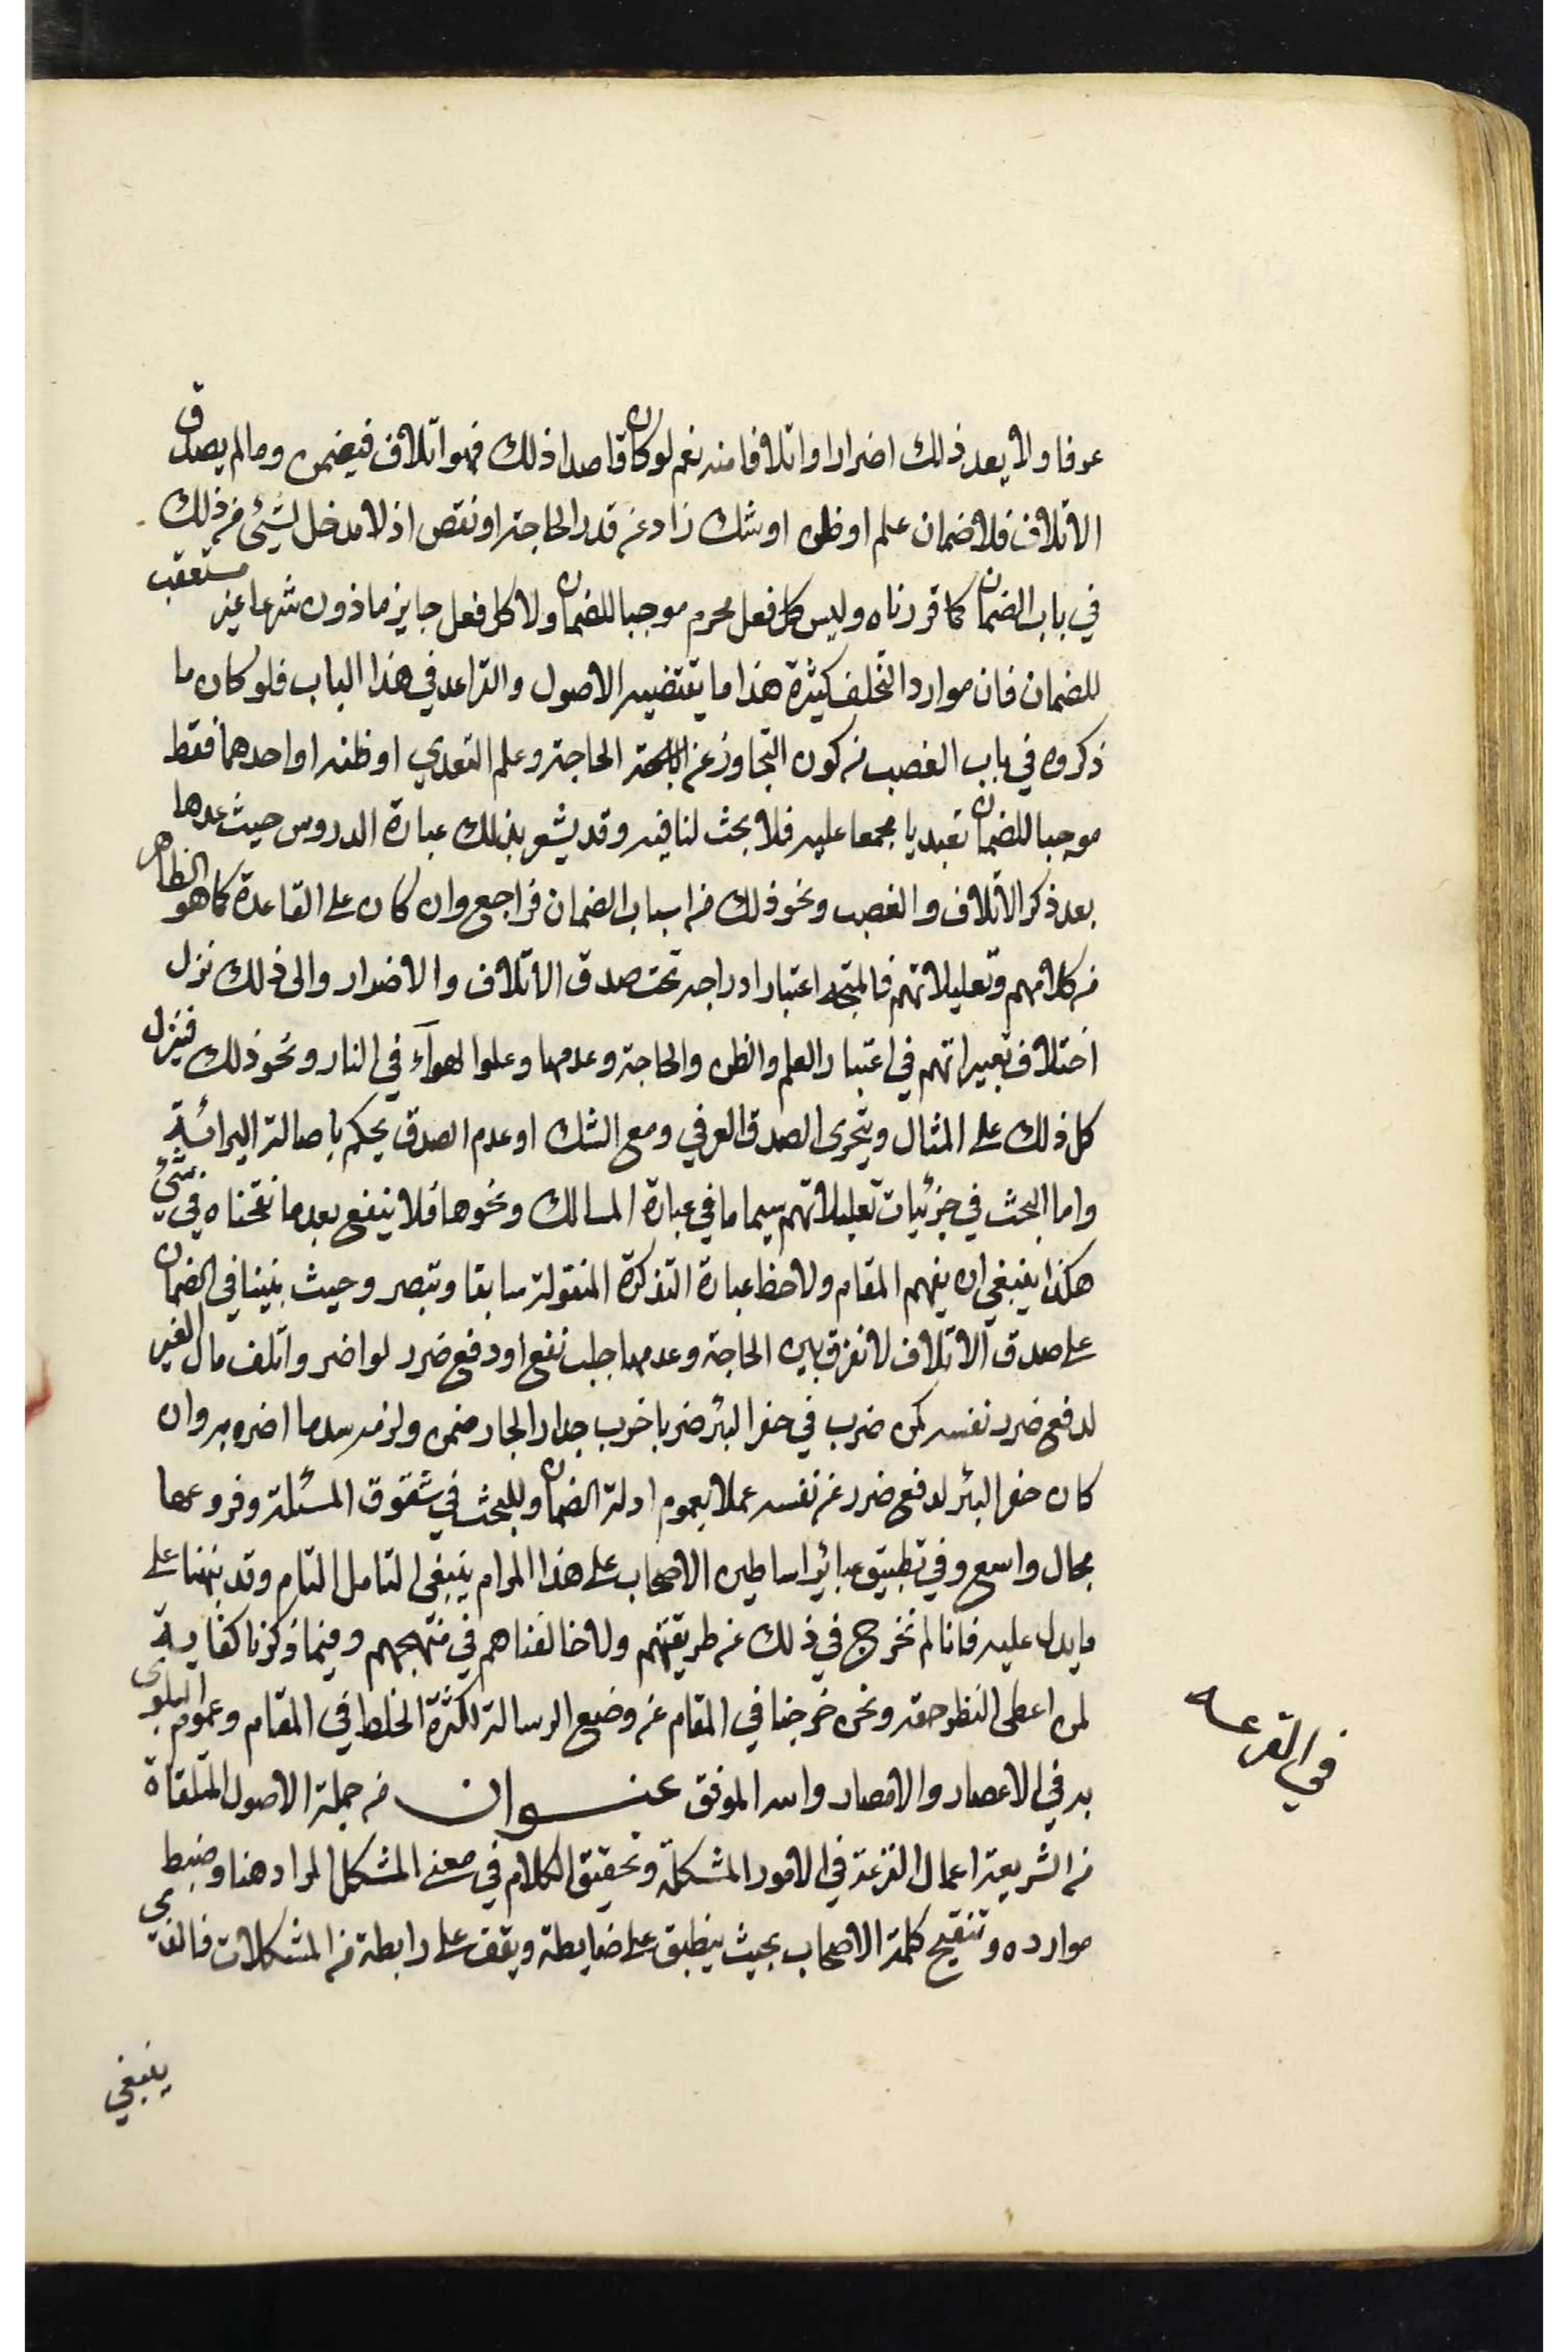 عرفا ولا يعد ذلك اضرارا واتلافا منه نعم لو كان قاصدا ذلك فهو اتلاف فيضمن وما لم يصدق
الاتلاف فلا ضمان علم او ظن او شك زاد عن قدر الحاجة او نقص اذ لا مدخل لشيئ من ذلك
في باب الضمان كما قررناه وليس كل فعل محرم موجبا للضمان ولا كل فعل جايز ماذون شرعا غير مستعقب
للضمان فان موارد التخلف كثيرة هذا ما يقتضيه الاصول والقواعد في هذا الباب فلو كان ما
ذكروه في باب الغصب من كون التجاوز عن الحاجة وعلم التعدي او ظنه او احدهما فقط
موجبا للضمان تعبديا مجمعا عليه فلا بحث لنا فيه وقد يشعر بذلك عبارة الدروس حيث عدها
بعد ذكر الاتلاف والغصب ونحو ذلك من اسباب الضمان فراجع وان كان على القاعدة كما هو الظاهر
من كلامهم وتعليلاتهم فالمتجه اعتبار ادراجه تحت صدق الاتلاف والاضرار والى ذلك نزل
اختلاف تعبيراتهم في اعتبار العلم والظن والحاجة وعدمها وعلو الهوآء في النار ونحو ذلك فينزل
كل ذلك على المثال ويتحرى الصدق العرفي ومع الشك او عدم الصدق يحكم باصالة البرائة
واما البحث في جزئيات تعليلاتهم سيما ما في عبارة المسالك ونحوها فلا ينفع بعد ما نقحناه في شيئ
هكذا ينبغي ان يفهم المقام ولاحظ عبارة التذكرة المنقولة سابقا وتبصر وحيث بنينا في الضمان
على صدق الاتلاف لا نفرق بين الحاجة وعدمها جلب نفع او دفع ضرر لو اضر واتلف مال الغير
لدفع ضرر نفسه كمن ضرب في حفر البئر ضربا خرب جدار الجار ضمن ولزمه سد ما اضر به وان
كان حفر البئر لدفع ضرر عن نفسه عملا بعموم ادلة الضمان وللبحث في شقوق المسئلة وفروعها
مجال واسع وفي تطبيق عبائر اساطين الاصحاب على هذا المرام ينبغي التامل التام وقد نبهنا على
ما يدل عليه فانا لم نخرج في ذلك عن طريقتهم ولا خالفناهم في منهجهم وفيما ذكرنا كفاية
لمن اعطى النظر حقه ونحن خرجنا في المقام عن وضع الرسالة لكثرة الخلط في المقام وعموم البلوى
به في الاعصار والامصار والله الموفق عنوان من جملة الاصول المتلقاة
من الشريعة اعمال القرعة في الامور المشكلة وتحقيق الكلام في معنى المشكل المراد هنا وضبط
موارده وتنقيح كلمة الاصحاب بحيث ينطبق على ضابطة ويقف على رابطة من المشكلات فالذي
ينبغي
في القرعه